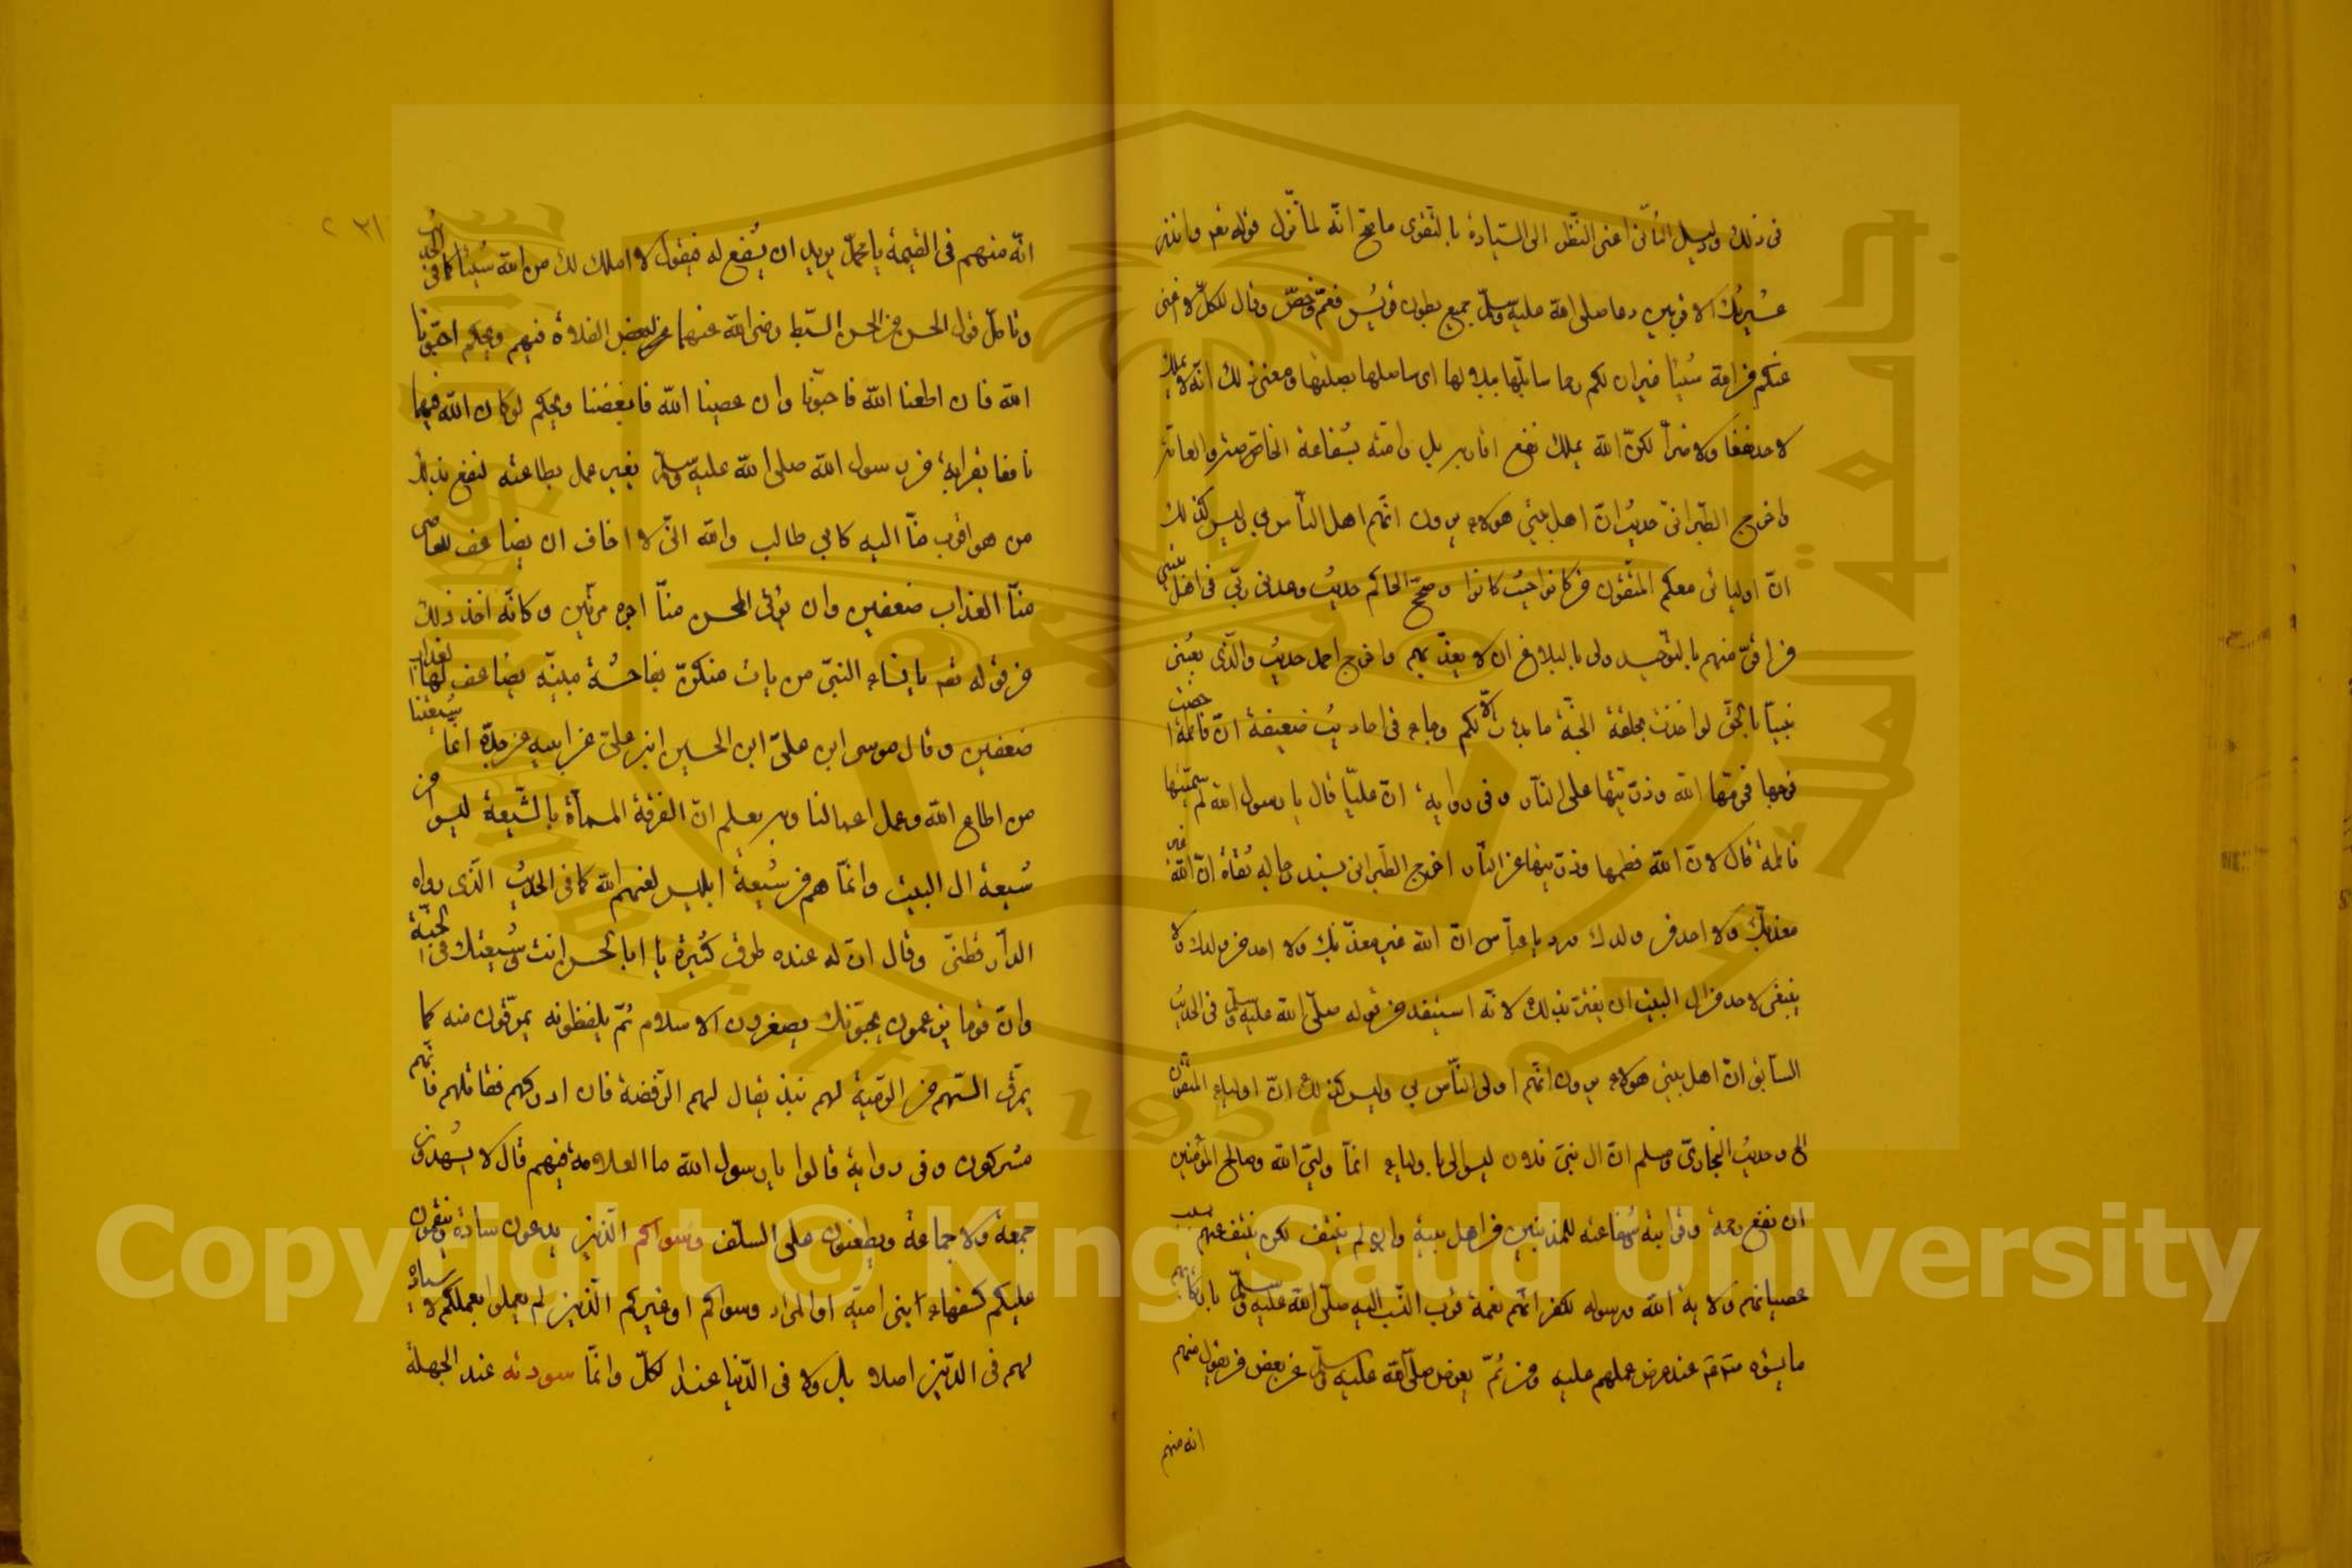 في ذلك ودليل اعني النظر الى السيادة بالتقوى ما صح انه لما نزل قوله تعم وانذر
عشيرتك الاقربين دعا صلى الله عليه وسلم جميع بطون قريش فعم وخص وقال للكل لا اغنى
عنكم من الله شيئا غير ان لكم رحما سابلها ببلالها اى ساصلها بصلتها ومعنى ذلك انه لا يملك
لاحد نفعا ولا ضرا لكن الله يملك نفع اقاربه بل وامته بشفاعة الخاصة منه والعامة
واخرج الطبراني حديث ان اهل بيتي هولاء يرون انهم اهل الناس بي وليس كذلك
ان اوليائى معكم المتقون من كانوا حيث كانوا وصحح الحاكم حديث وعدنى ربى فى اهل بيتي
من اقر منهم بالتوحيد ولى بالبلاغ ان لا يعذبهم واخرج احمد حديث والذى بعثنى
نبيا بالحق لو اخذت بحلقة الجنة ما بدات الا بكم وجاء فى احاديث ضعيفة ان فاطمة احصنت
فرجها فحرمها الله وذريتها على النار وفى رواية ان عليا قال يا رسول الله لم سميتها
فاطمة قال لان الله فطمها وذريتها عن النار اخرج الطبرانى بسند رجاله ثقاة ان الله غير
معذبك ولا احد من ولدك ورد يا عباس ان الله غير معذبك ولا احد من ولدك ولا
ينبغى لاحد من ال البيت ان يغتر بذلك لانه استفيد من قوله صلى الله عليه وسلم فى الحديث
السابق ان اهل بيتى هولاء يرون انهم اولى الناس بي وليس كذلك ان اولياء المتقون
الى وحديث البخارى ومسلم ان ال بنى فلان ليسوا لى باولياء انما وليى الله وصالح المؤمنين
ان نفع رحمه وقرابته وشفاعته للمذنبين من اهل بيته وان لم ينتف لكن ينتف عنهم بسبب
عصيانهم ولاية الله ورسوله لكفرانهم نعمة قرب النسب اليه صلى الله عليه وسلم بارتكابهم
ما يسؤه عند عرض عملهم عليه ومن ثم يعرض صلى الله عليه وسلم عن بعض من يقول منهم
انه منهم
٢٣١
انه منهم فى القيمة يا محمد يريد ان يشفع له فيقول لا املك لك من الله شيئا كما فى الحديث
وتامل قول الحسن بن الحسن السبط رضى الله عنهما لبعض الغلاة فيهم ويحكم احبونا
الله فان اطعنا الله فاحبونا وان عصينا الله فابغضنا ويحكم لو كان الله
نافعا بقرابة من رسول الله صلى الله عليه وسلم بغير عمل بطاعته لنفع بذلك
من هو اقرب منا اليه كابي طالب والله انى لا اخاف ان يضاعف للعاصى
منا العذاب ضعفين وان يؤتى المحسن منا اجره مرتين وكانه اخذ ذلك
من قوله تعم يا نساء النبى من يات منكن بفاحشة مبينة يضاعف لها العذاب
ضعفين وقال موسى ابن على ابن الحسين ابن على عن ابيه عن جده انما شيعتنا
من اطاع الله وعمل اعمالنا وبه يعلم ان الفرقة المسماة بالشيعة ليسوا من
شيعة ال البيت وانما هم من شيعة ابليس لعنهم الله كما فى الحديث الذى رواه
الدارقطنى وقال ان له عنده طرق كثيرة يا ابا الحسن انت وشيعتك فى الجنة
وان قوما يزعمون يحبونك يصغرون الاسلام ثم يلفظونه يمرقون منه كما
يمرق السهم من الرمية لهم نبذ يقال لهم الرفضة فان ادركهم فقاتلهم فانهم
مشركون وفى رواية قالوا يا رسول الله ما العلامة فيهم قال لا يشهدون
جمعة ولا جماعة ويطعنون على السلف وسواكم الذين يدعون سادة
عليكم كسفهاء ابنى امية او المراد وسواكم او غيركم الذين لم يعملوا بعملكم لا سيادة
لهم فى الدين اصلا بل ولا فى الدنيا عند الكل وانما سودته عند الجهلة